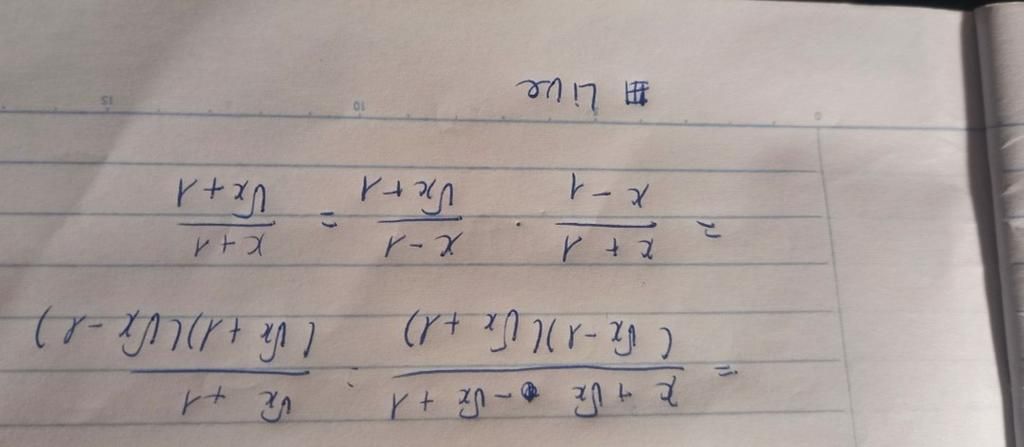 = \frac{x + \sqrt{x} - \sqrt{x} + 1}{(\sqrt{x} - 1)(\sqrt{x} + 1)} : \frac{\sqrt{x} + 1}{(\sqrt{x} + 1)(\sqrt{x} - 1)}
= \frac{x + 1}{x - 1} \cdot \frac{x - 1}{\sqrt{x} + 1} = \frac{x + 1}{\sqrt{x} + 1}
0 10 15
Live